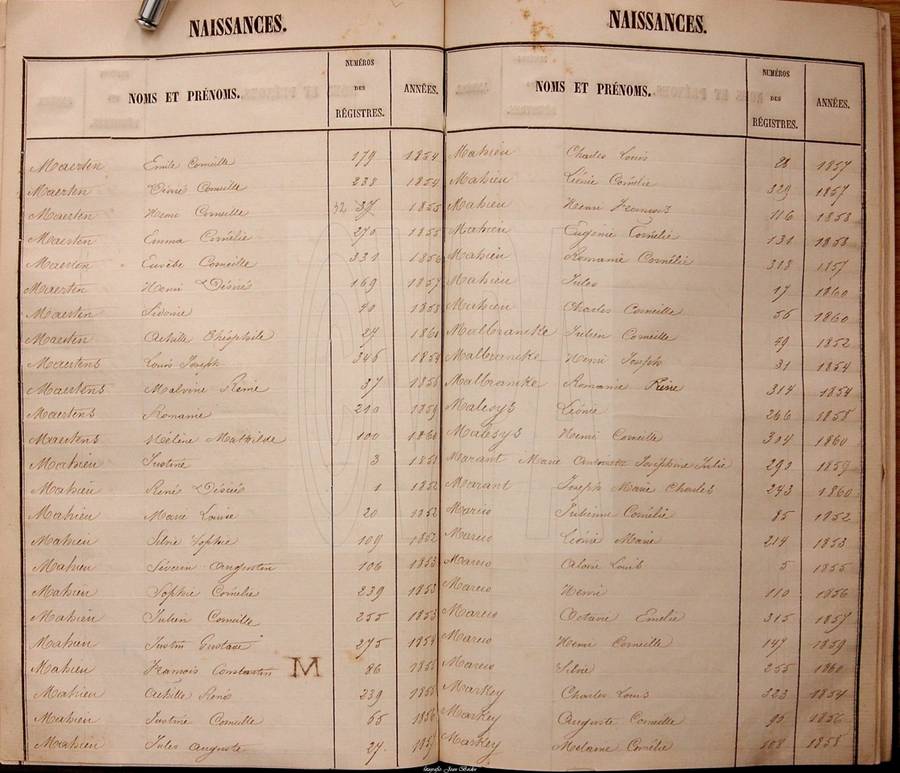 NAISSANCES.
NOMS ET PRÉNOMS. NUMÉROS DES RÉGISTRES. ANNÉES.
Maerten Emile Corneille 179 1854
Maerten Désiré Corneille 238 1854
Maerten Henri Corneille 1855
Maerten Emma Cornélie 270 1855
Maerten Eusèbe Corneille 331 1856
Maerten Henri Désiré 169 1857
Maerten Sidonie 90 1858
Maerten Achille Théophile 27 1860
Maertens Louis Joseph 346 1854
Maertens Malvine Renée 37 1858
Maertens Romanie 210 1859
Maertens Hélène Mathilde 100 1860
Mahieu Justine 3 1851
Mahieu René Désiré 1 1852
Mahieu Marie Louise 20 1852
Mahieu Silvie Sophie 109 1852
Mahieu Séverin Augustin 106 1853
Mahieu Sophie Cornélie 239 1853
Mahieu Julien Corneille 255 1853
Mahieu Justin Gustave 275 1854
Mahieu François Constantin M 86 1855
Mahieu Achille René 239 1855
Mahieu Justine Corneille 65 1856
Mahieu Jules Auguste 27 1857
NAISSANCES.
NOMS ET PRÉNOMS. NUMÉROS DES RÉGISTRES. ANNÉES.
Mahieu Charles Louis 28 1857
Mahieu Léonie Cornélie 329 1857
Mahieu Henri François 116 1858
Mahieu Eugénie Cornélie 131 1858
Mahieu Romanie Cornélie 318 1857
Mahieu Jules 17 1860
Mahieu Charles Corneille 56 1860
Malbrancke Julien Corneille 59 1852
Malbrancke Henri Joseph 31 1854
Malbrancke Romanie Reine 314 1854
Malesys Léonie 266 1858
Malesys Henri Corneille 304 1860
Marant Marie Antoinette Joséphine Julie 290 1859
Marant Joseph Marie Charles 243 1860
Julienne Cornélie 85 1852
Léonie Marie 214 1853
Aloïse Louis 5 1855
Henri 110 1856
Octavie Emélie 315 1857
Henri Corneille 147 1859
Silvie 255 1860
Markey Charles Louis 323 1854
Markey Auguste Corneille 90 1856
Markey Mélanie Cornélie 108 1858